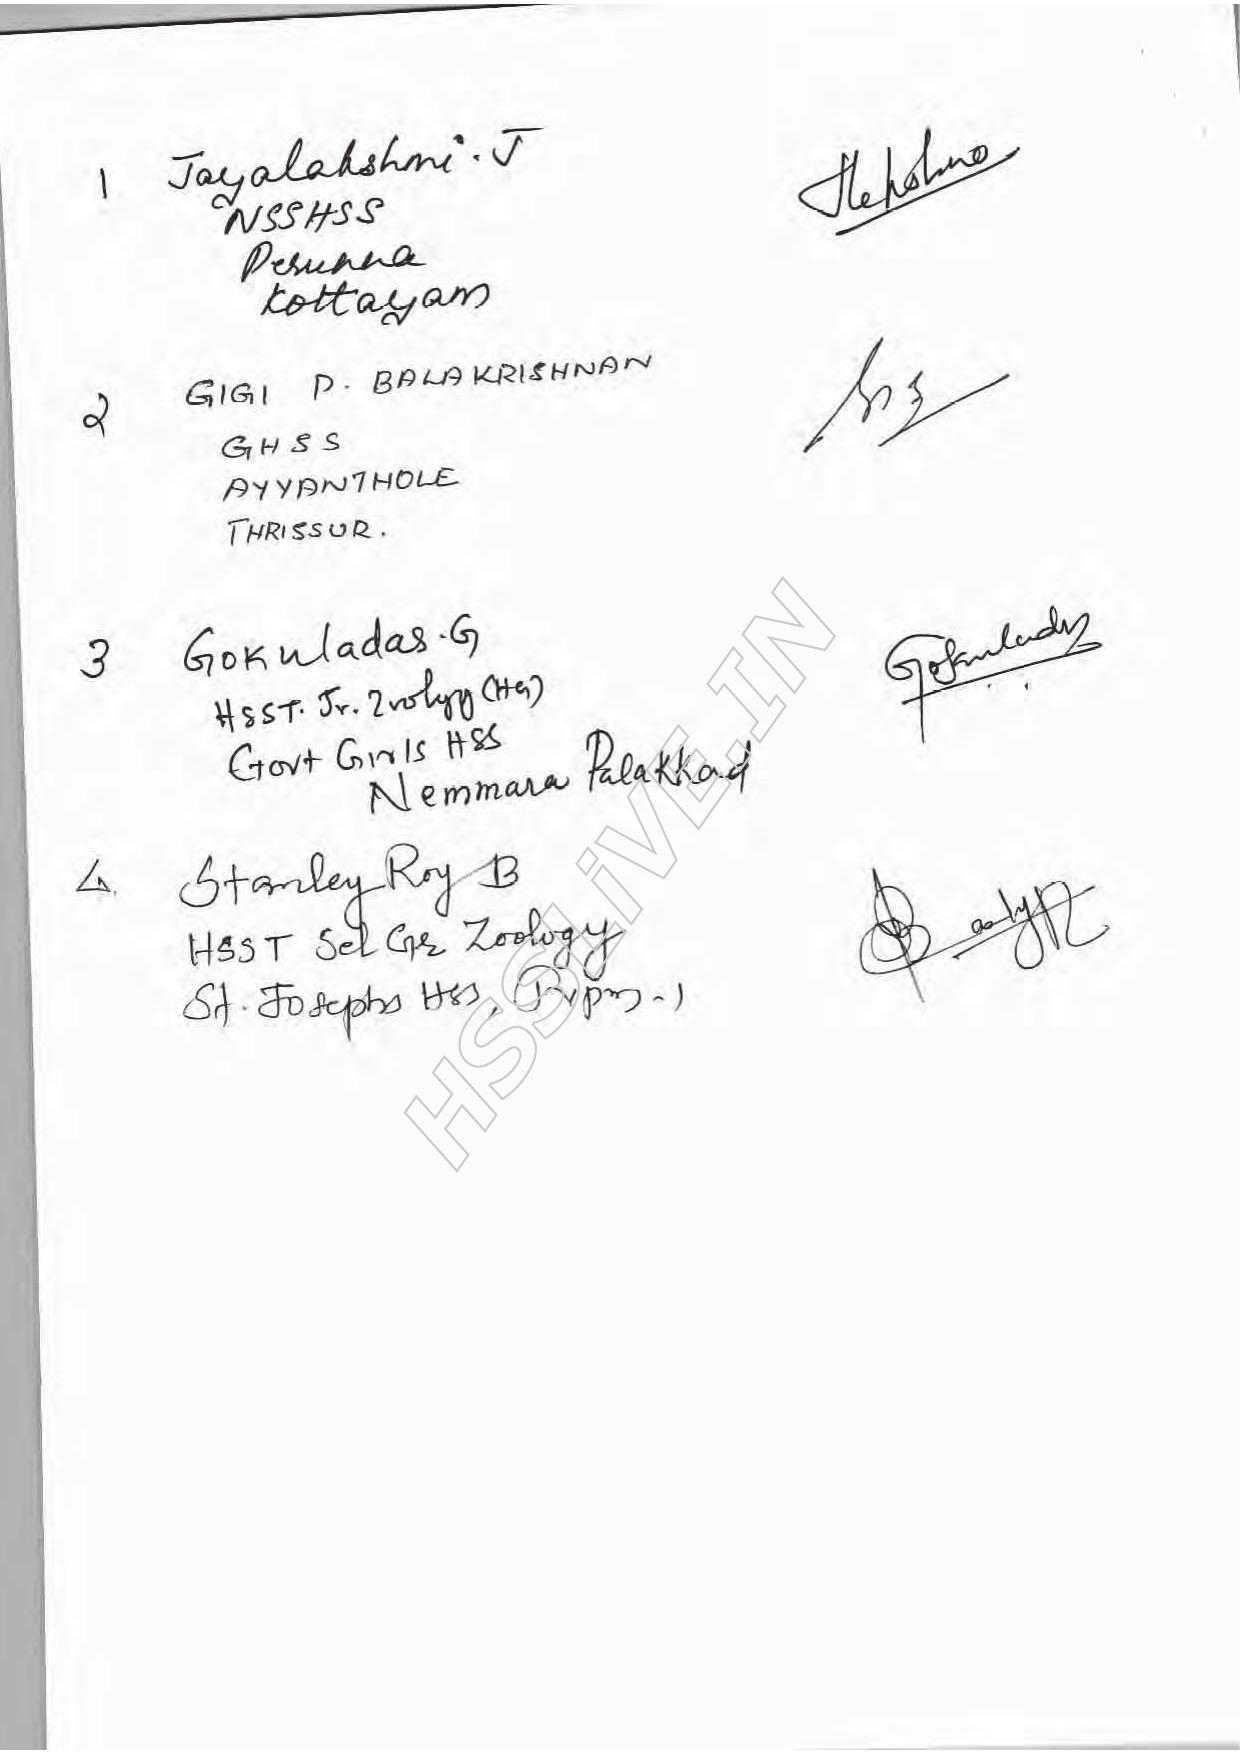 1 Jayalakshmi. J
NSSHSS
Perunna
Kottayam
2 GIGI P. BALAKRISHNAN
GHSS
AYYANTHOLE
THRISSUR.
3 Gokuladas. G
Gokuladas
HSST. Jr. Zoology (HG)
Govt Girls HSS
Nemmara Palakkad
4. Stanley Roy B
HSST Sel Gr Zoology
St. Josephs HSS, Tvpm-1
HSSLiVE.IN